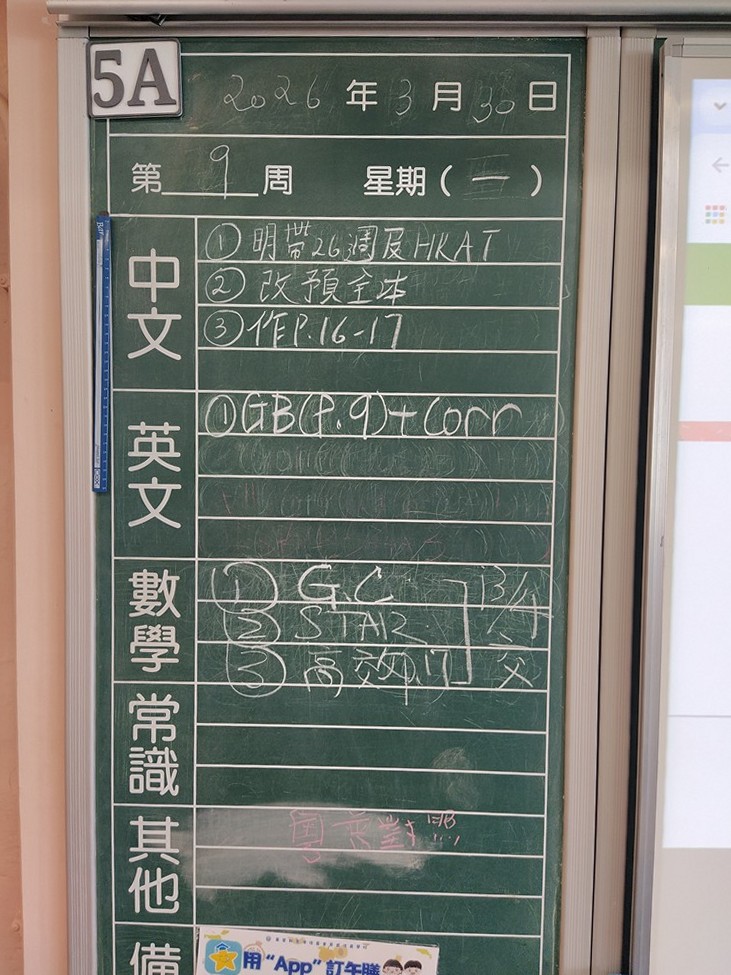 5A
2026年3月30日
第9周 星期(一)
中文
①明帶26週及HKAT
②改預全本
③作P.16-17
英文
①GB(P.9)+Corr
數學
① G.C
② STAR
③ 高效
13/4
交
常識
其他
粵 對照
備
用“App”訂午膳